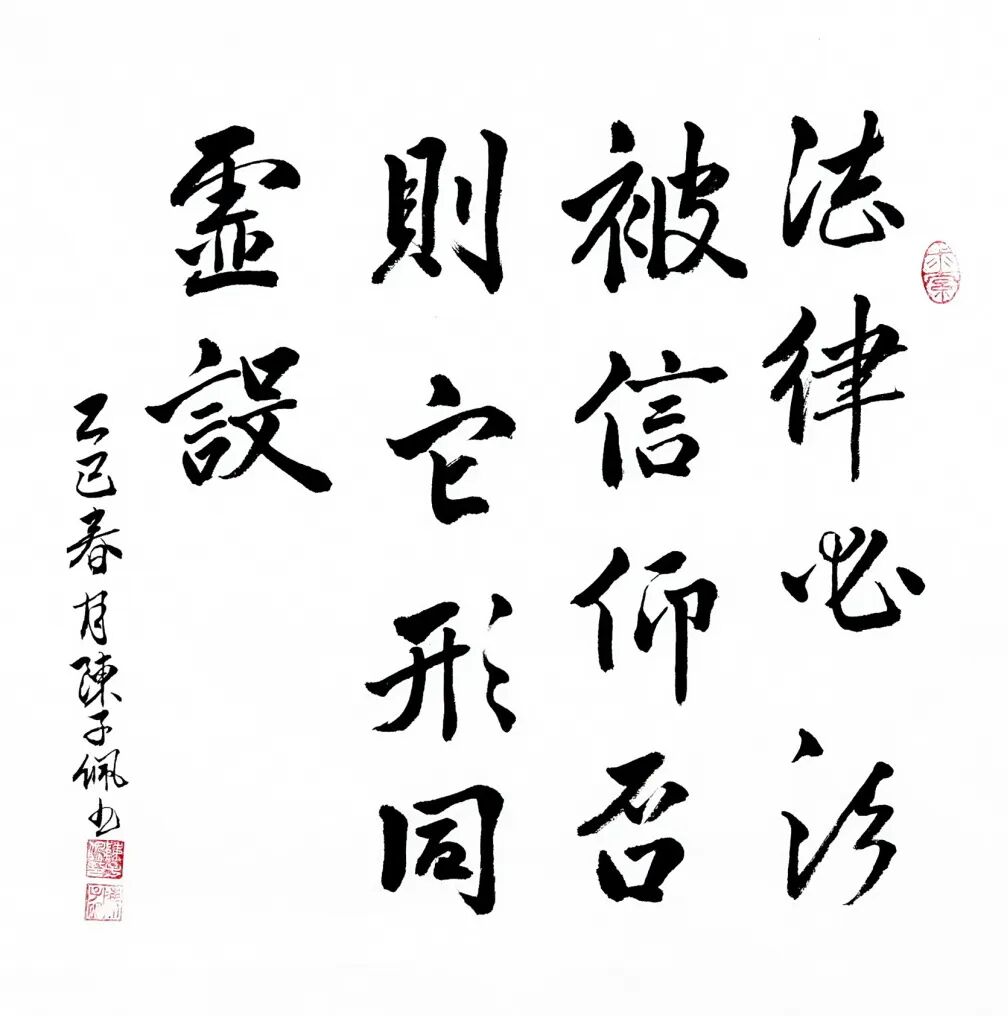 法律必須
被信仰否
則它形同
虛設
乙巳春月陳子佩书